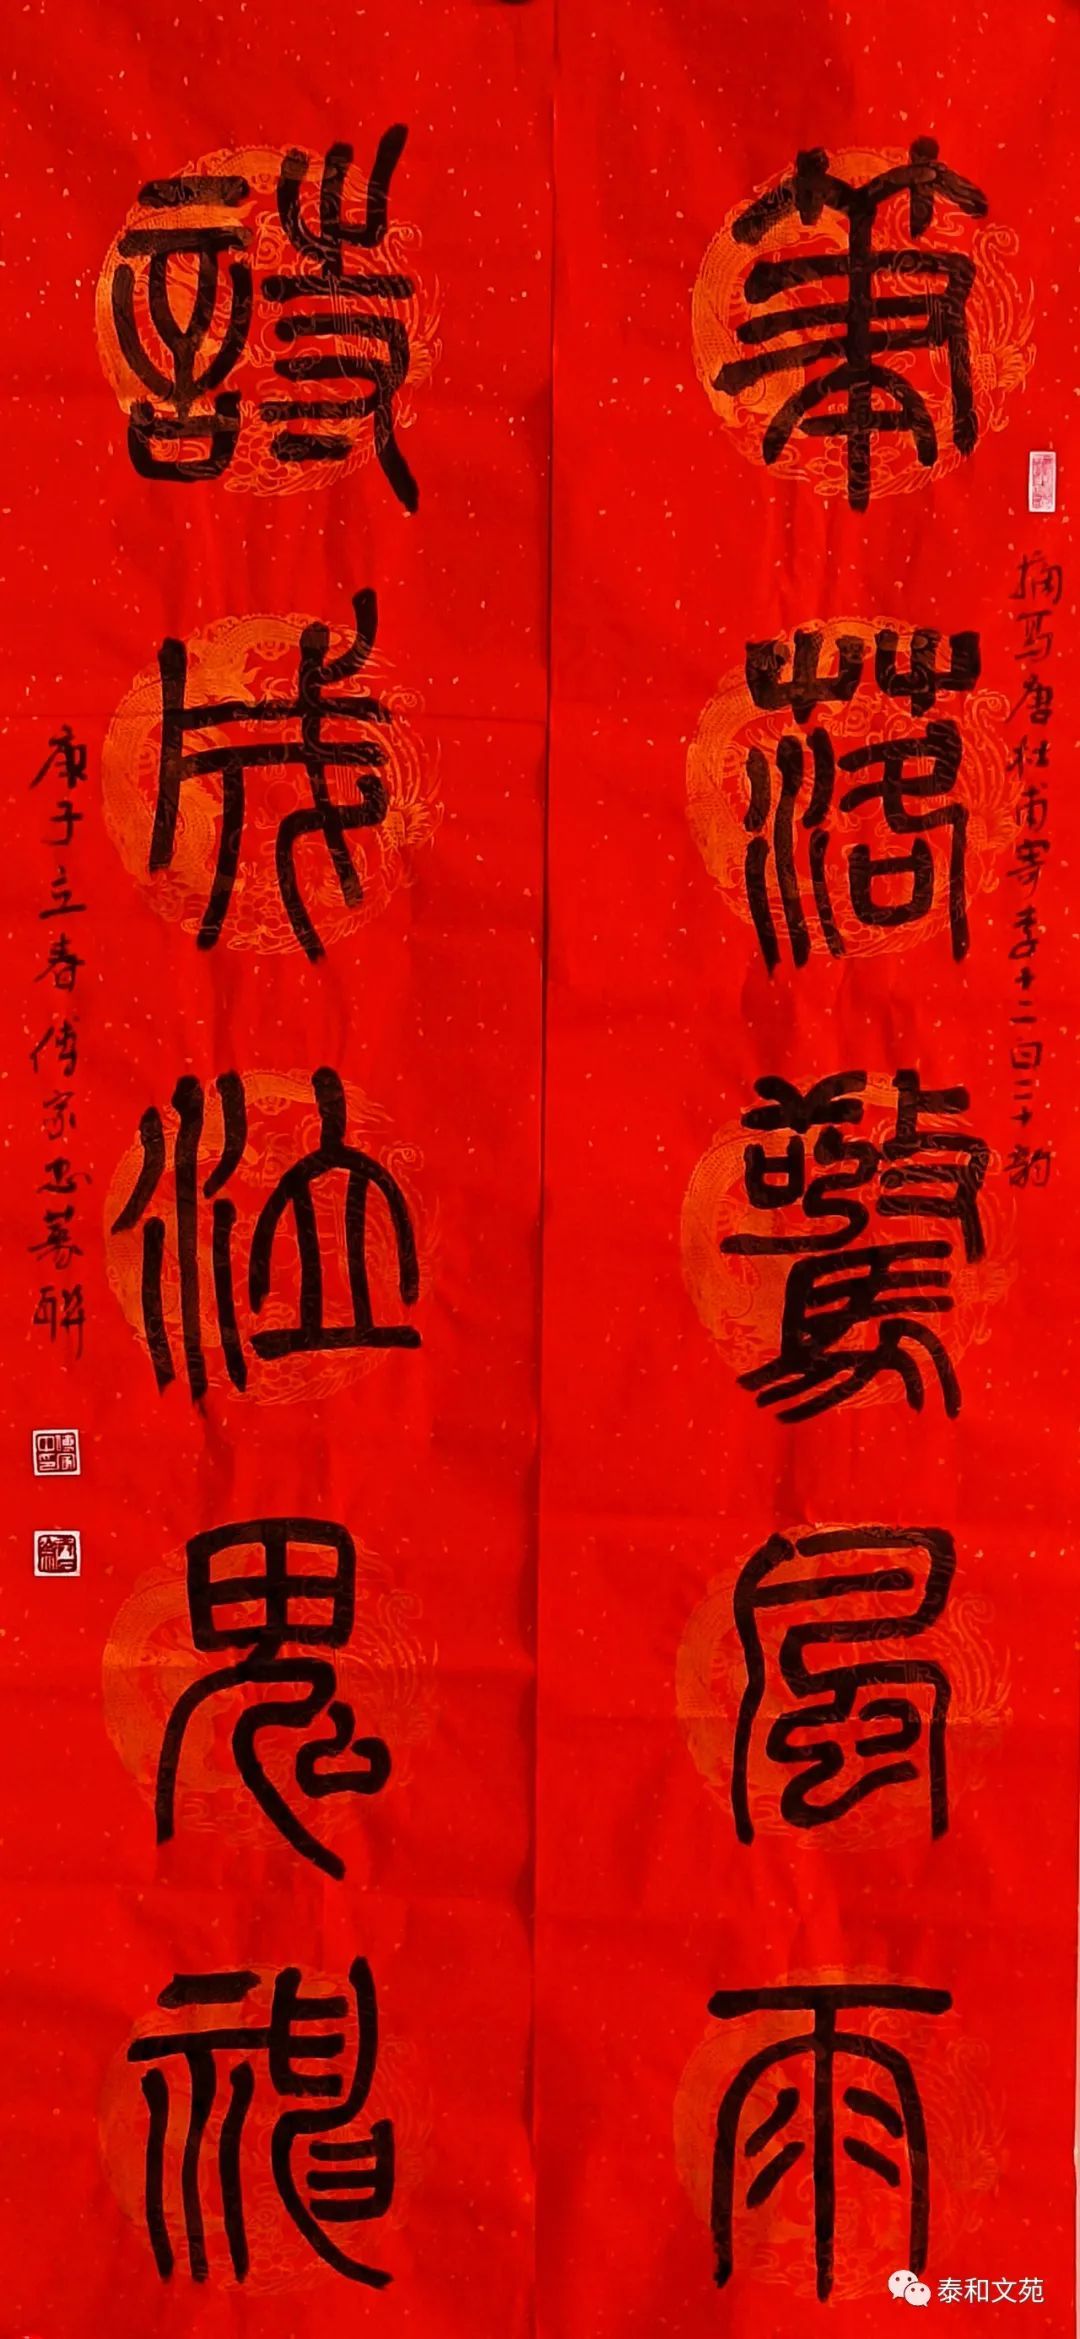 筆落驚風雨
摘写唐杜甫寄李十二白二十韵
詩成泣鬼神
庚子立春傅家忠篆联
泰和文苑